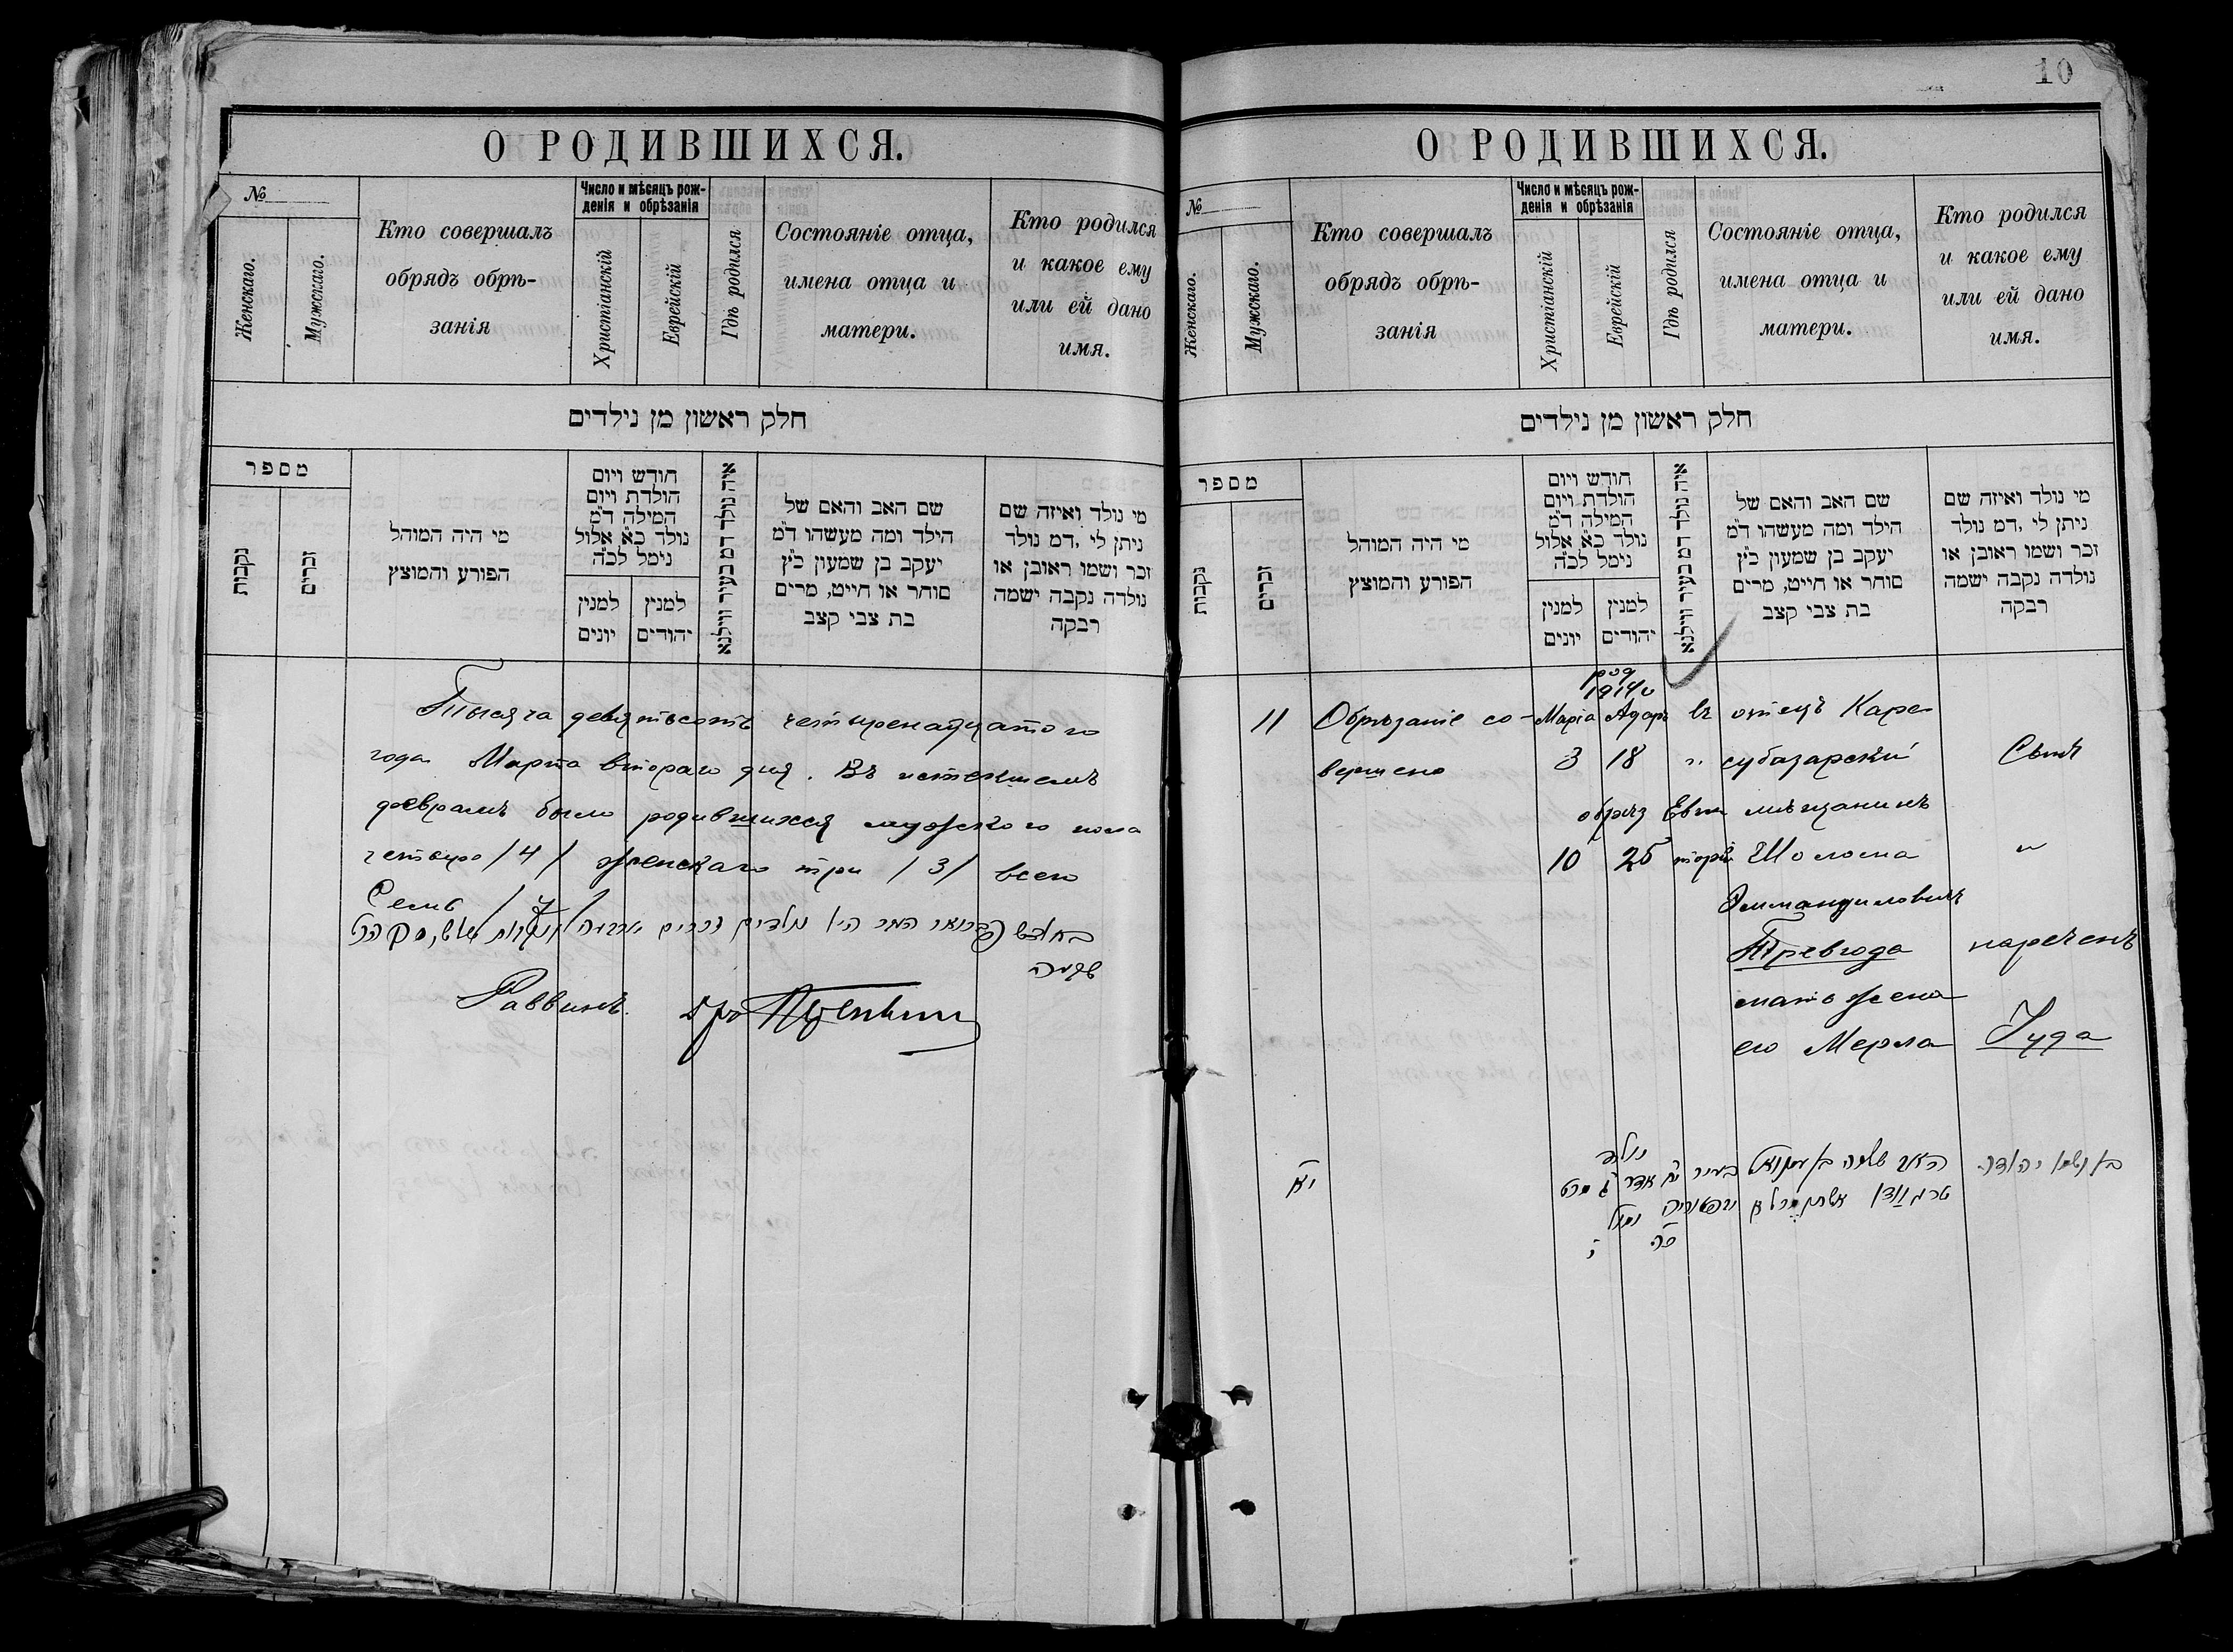 О РОДИВШИХСЯ.
№
Женскаго.
Мужскаго.
Кто совершалъ
обрядъ обрѣ-
занія
Число и мѣсяцъ рож-
денія и обрѣзанія
Христіанскій
Еврейскій
Гдѣ родился
Состояніе отца,
имена отца и
матери.
Кто родился
и какое ему
или ей дано
имя.
חלק ראשון מן נילדים
מספר
נקבות
זכרים
מי היה המוהל
הפורע והמוצץ
חודש ויום
הולדת ויום
המילה ד"מ
נולד כ"א אלול
נימל לכ"ה
למנין
יונים
למנין
יהודים
איה נולד דמ בעיר ווילנא
שם האב והאם של
הילד ומה מעשהו ד"מ
יעקב בן שמעון כ"ץ
סוחר או חייט, מרים
בת צבי קצב
מי נולד ואיזה שם
ניתן לי ,דמ נולד
זכר ושמו ראובן או
נולדה נקבה ישמה
רבקה
Тысяча девятьсотъ четырнадцатого
года Марта второго дня. Въ истекшемъ
февралѣ было родившихся мужского пола
четыре /4/ женскаго три /3/ всего
Семь /7/
שבעה
Раввинъ
10
О РОДИВШИХСЯ.
№
Женскаго.
Мужскаго.
Кто совершалъ
обрядъ обрѣ-
занія
Число и мѣсяцъ рож-
денія и обрѣзанія
Христіанскій
Еврейскій
Гдѣ родился
Состояніе отца,
имена отца и
матери.
Кто родился
и какое ему
или ей дано
имя.
חלק ראשון מן נילדים
מספר
נקבות
זכרים
מי היה המוהל
הפורע והמוצץ
חודש ויום
הולדת ויום
המילה ד"מ
נולד כ"א אלול
נימל לכ"ה
למנין
יונים
למנין
יהודים
איה נולד דמ בעיר ווילנא
שם האב והאם של
הילד ומה מעשהו ד"מ
יעקב בן שמעון כ"ץ
סוחר או חייט, מרים
בת צבי קצב
מי נולד ואיזה שם
ניתן לי ,דמ נולד
זכר ושמו ראובן או
נולדה נקבה ישמה
רבקה
род
1914
11 Обрѣзаніе со- Адаръ въ отецъ Кара-
вершено 3 18 " субазарскій Сынъ
обрѣз Евпа мѣщанинъ
10 25 торіи Шолома "
Эммануиловичъ
Тревгода нареченъ
мать жена
его Мерла Іуда
נולד
יא האב שלמה בן עמנואל בעיר יח אדר ג מרט בן ושמו יהודה
נימול
כה